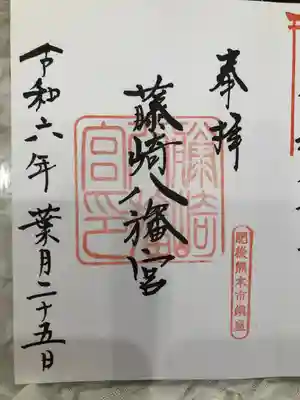 奉拝
藤崎八旛宮
令和六年葉月二十五日
藤崎八旛宮印
肥後熊本市鎮座